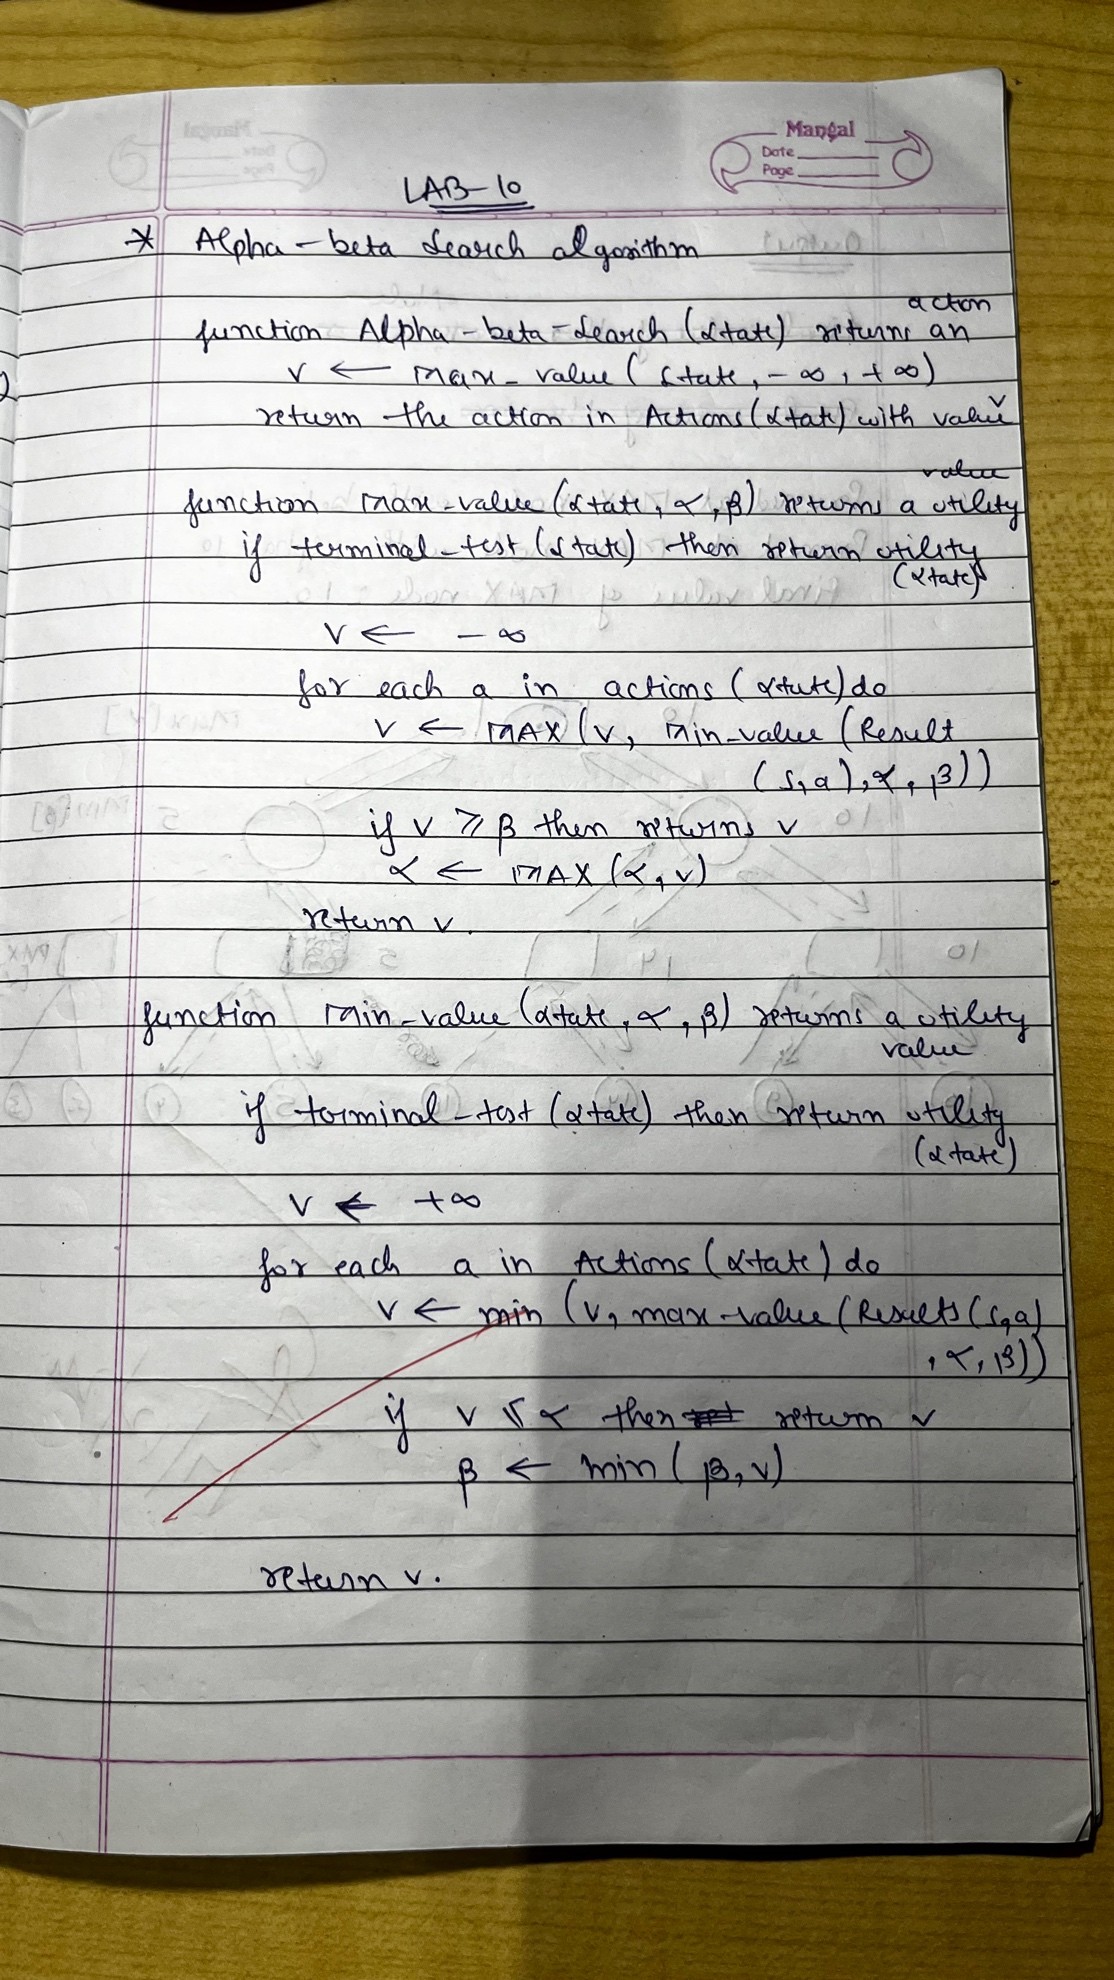 Mangal
Date
Page
LAB-10
* Alpha-beta Search algorithm
action
function Alpha-beta-Search (state) returns an
v ← max-value (state, -∞, +∞)
return the action in Actions(state) with value v
value
function max-value (state, α, β) returns a utility
if terminal-test (state) then return utility
(state)
v ← -∞
for each a in actions (state) do
v ← MAX (v, Min-value (Result
(s,a), α, β))
if v ≥ β then returns v
α ← MAX (α, v)
return v.
function Min-value (state, α, β) returns a utility
value
if terminal-test (state) then return utility
(state)
v ← +∞
for each a in Actions (state) do
v ← min (v, max-value (Results (s,a)
, α, β))
if v ≤ α then return v
β ← min (β, v)
return v.